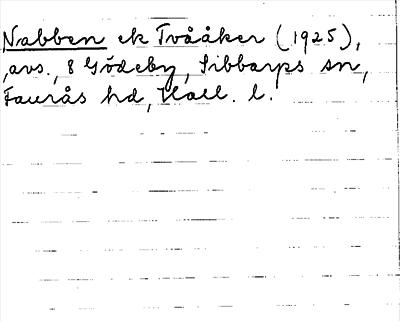 Nabben ek Tvååker (1925),
avs., 8 Gödeby, Sibbarps sn,
Faurås hd, Hall. l.